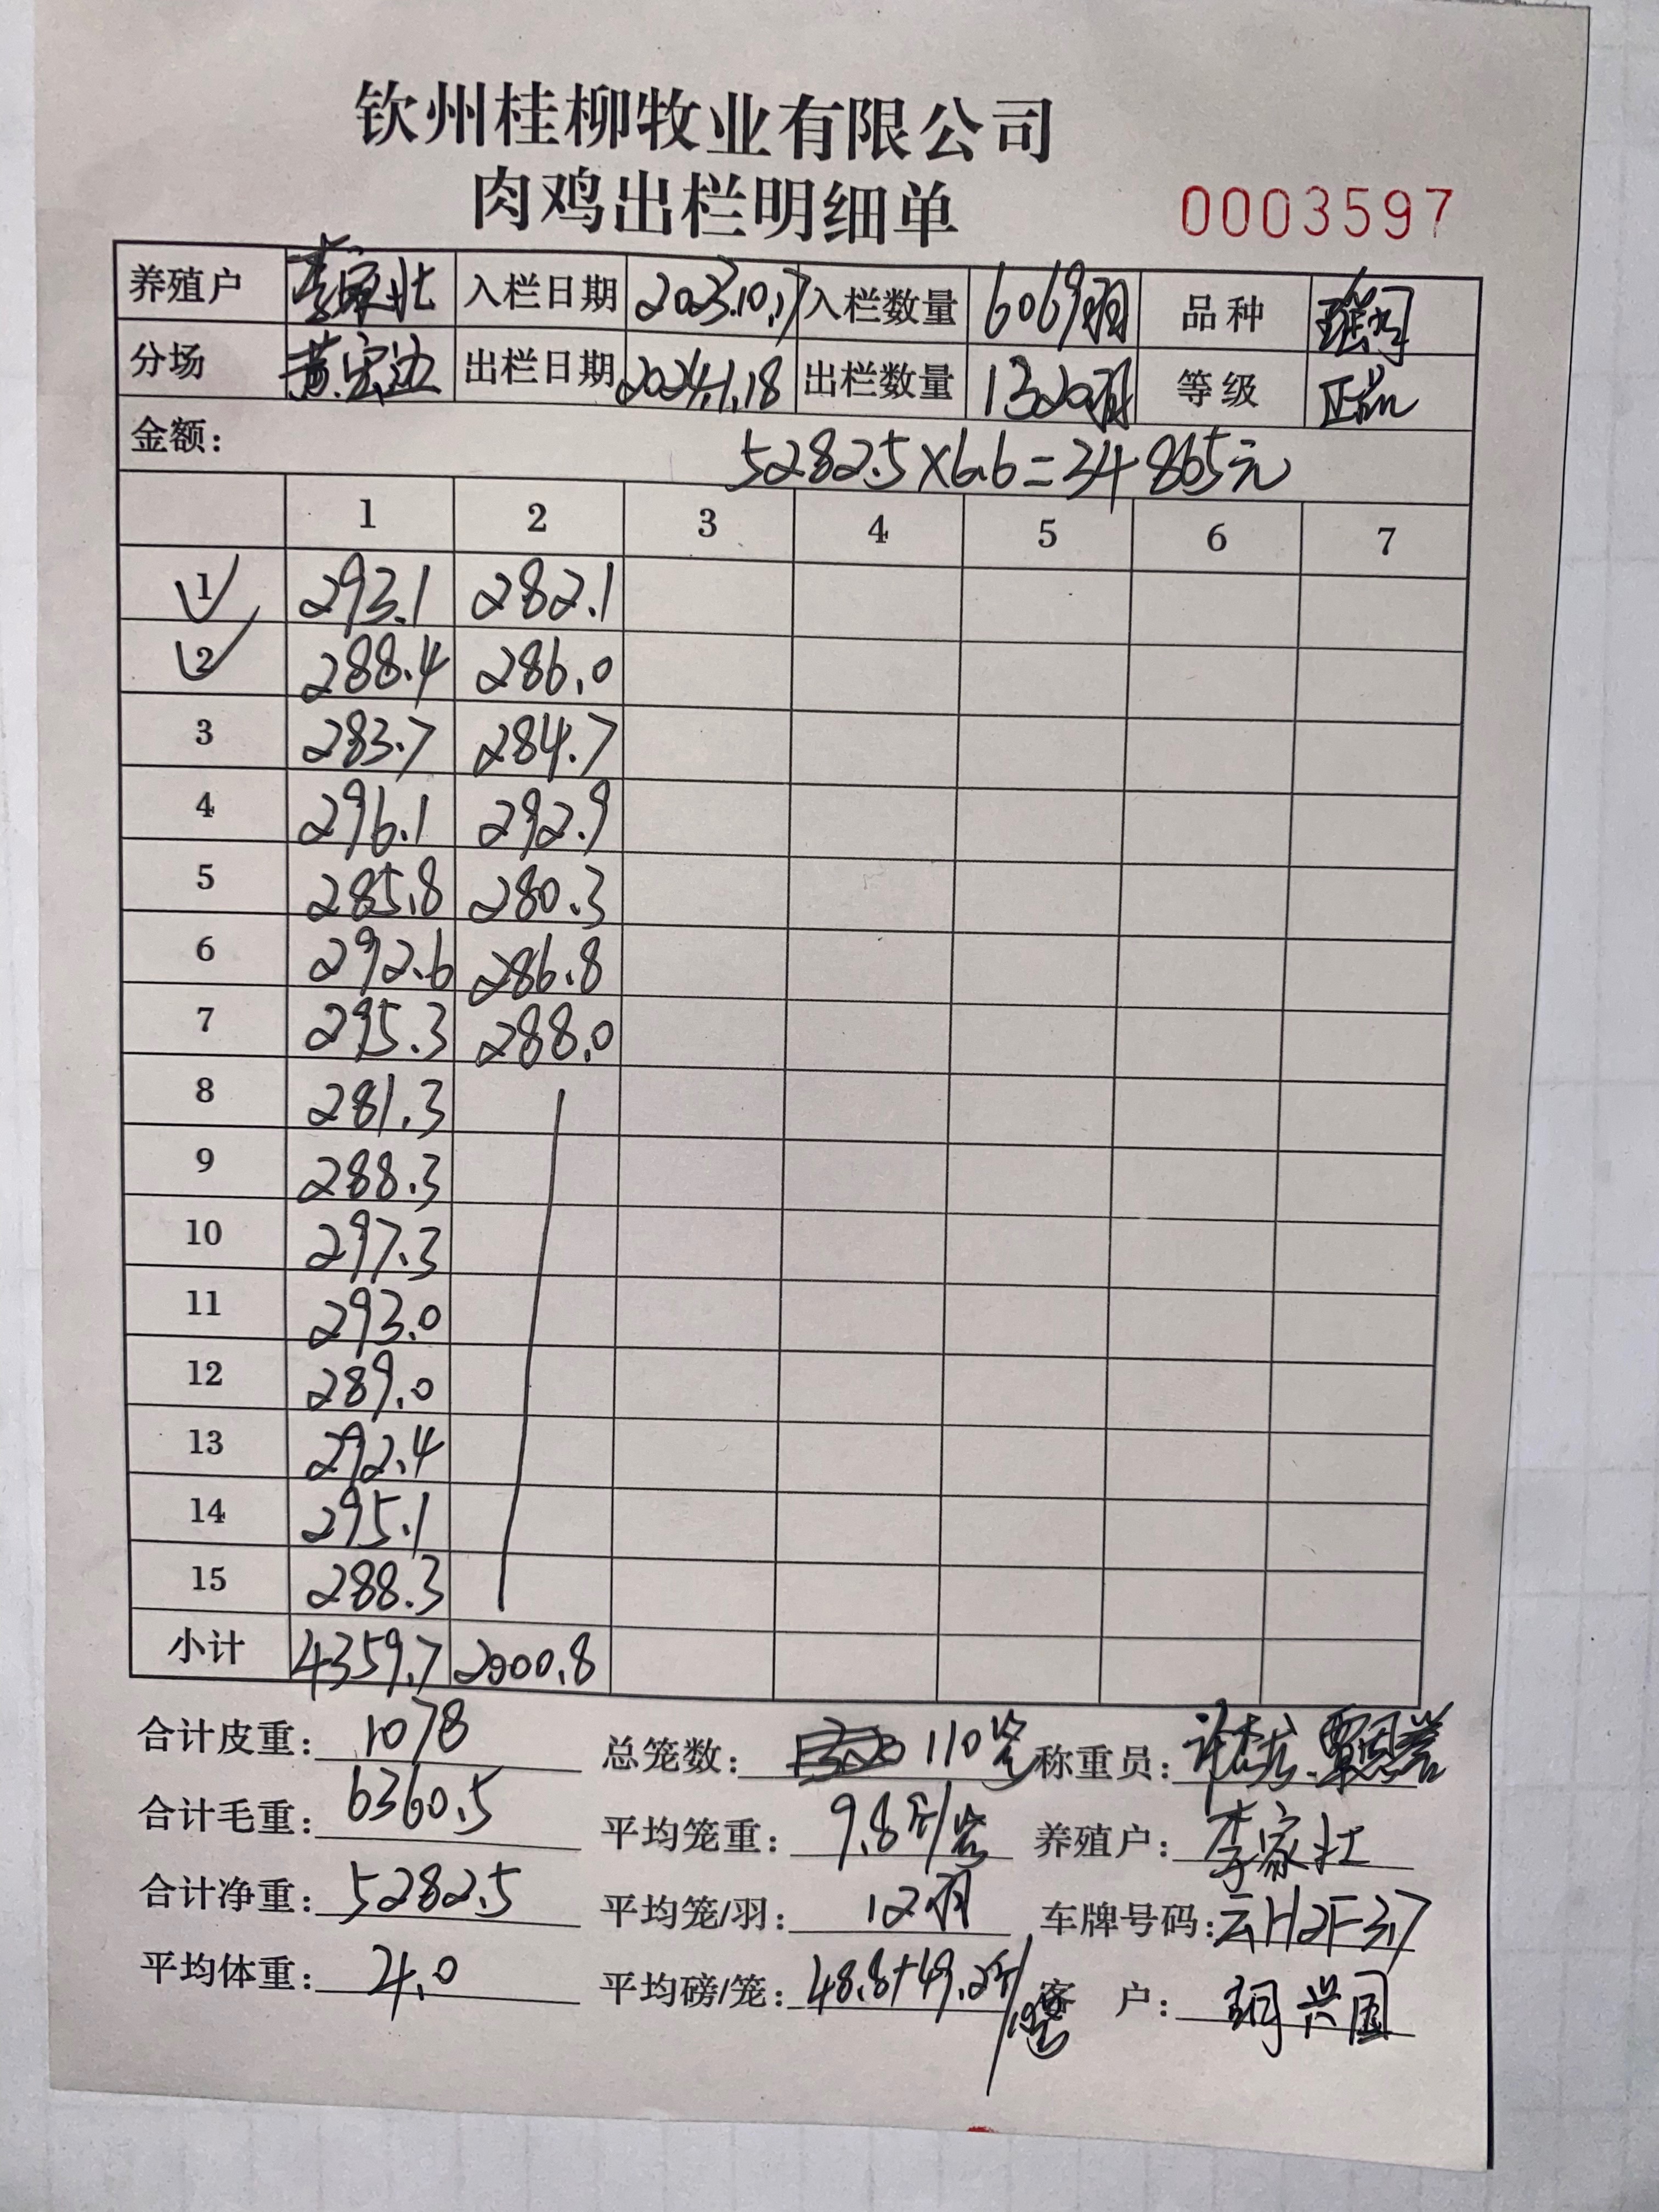 钦州桂柳牧业有限公司
肉鸡出栏明细单 0003597
养殖户 李家壮 入栏日期 2023.10.17 入栏数量 6069羽 品种
分场 出栏日期 2024.1.18 出栏数量 1320羽 等级 正品
金额: 5282.5×6.6=34865元
1 2 3 4 5 6 7
1 293.1 282.1
2 288.4 286.0
3 283.7 284.7
4 296.1 292.9
5 285.8 280.3
6 292.6 286.8
7 295.3 288.0
8 281.3
9 288.3
10 297.3
11 293.0
12 289.0
13 292.4
14 295.1
15 288.3
小计 4359.7 2000.8
合计皮重: 1078 总笼数: 110笼 称重员:
合计毛重: 6360.5 平均笼重: 9.8斤/笼 养殖户: 李家壮
合计净重: 5282.5 平均笼/羽: 12羽 车牌号码:
平均体重: 4.0 平均磅/笼: 48.8+49.2斤/ 客 户: 兴国